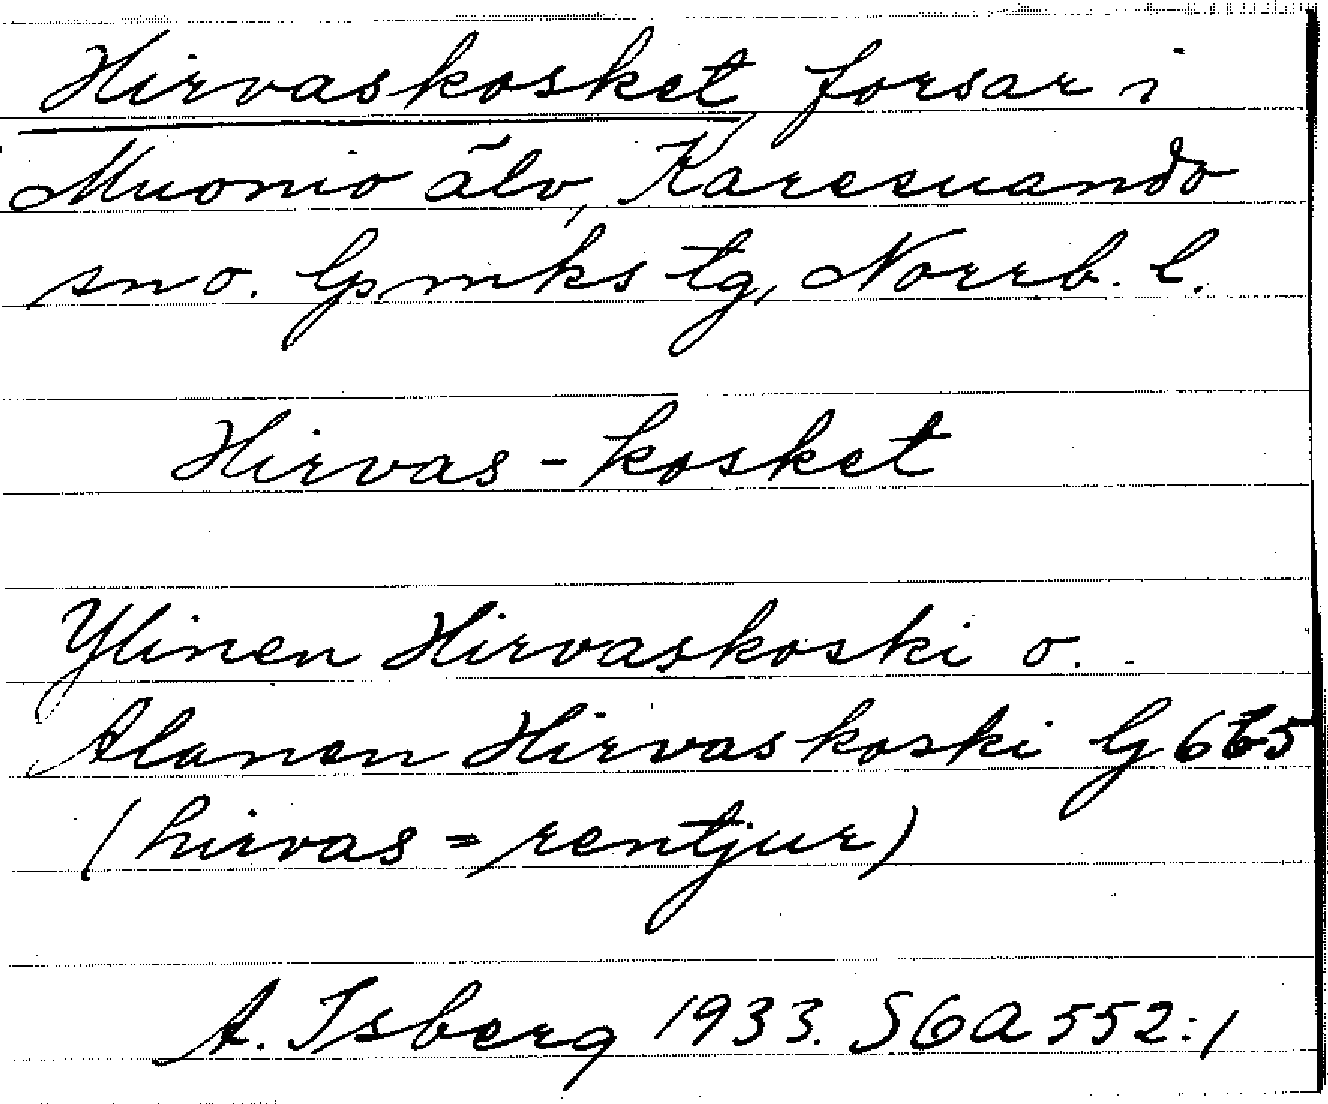 Hirvaskosket forsar i
Muonio älv, Karesuando
sn o. lpmks tg, Norrb. l.
Hirvas-kosket
Ylinen Hirvaskoski o.
Alanen Hirvaskoski G
(hirvas = rentjur)
A. Isberg 1933. SGA 552:1